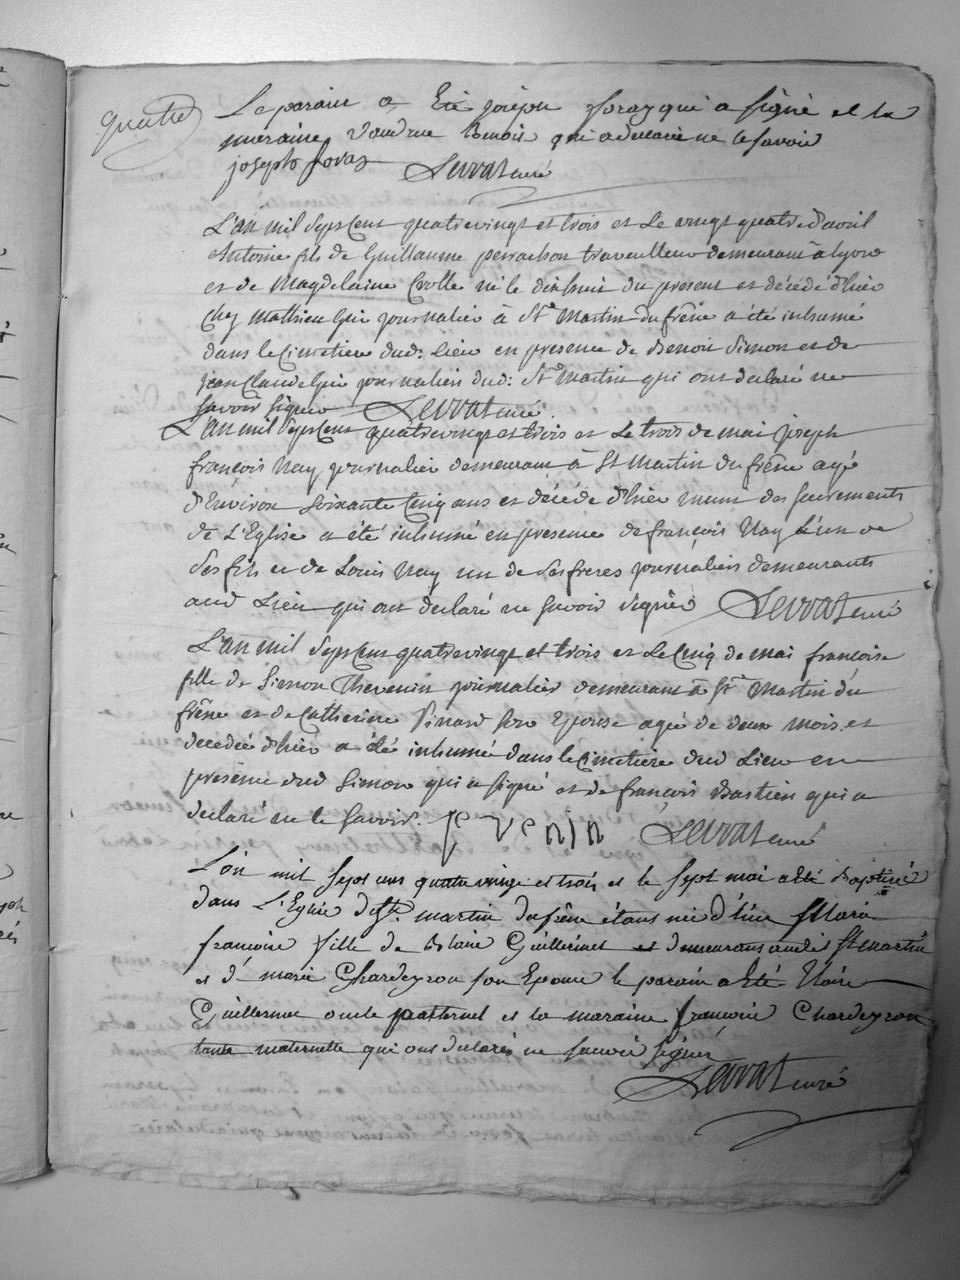 quatre
Le parain a Eté joseph foray qui a signé et la
maraine Benoit qui a declaré ne le savoir
joseph foraz Servat curé
L'an mil sept Cent quatrevingt et trois et Le vingt quatre d'avril
Antoine fils de Guillaume perrachon travailleur demeurant à lyon
et de Magdelaine Crolle né le dixhuit du présent et décédé d'hier
Chez Mathieu Gui journalier à St Martin du frêne a été inhumé
dans le Cimetiere dud: Lieu en presence de Benoit Simon et de
jean Claude Gui journaliers dud: St Martin qui ont declaré ne
savoir signer Servat curé.
L'an mil sept Cent quatrevingt et trois et Le trois de mai joseph
françois Nay journalier demeurant à St Martin du frêne agé
d'Environ soixante Cinq ans et décédé d'hier muni des sacrements
de L'Eglise a été inhumé en presence de françois Nay L'un de
ses fils et de Louis Nay un de ses freres journaliers demeurants
aud Lieu qui ont declaré ne savoir signer Servat curé
L'an mil sept Cent quatrevingt et trois et Le Cinq de mai françoise
fille de Simon Thevenin journalier demeurant à St Martin du
frêne et de Catherine Pinard son Epouse agée de deux mois et
decedée d'hier a été inhumé dans le Cimetiere dud Lieu en
présence dud Simon qui a signé et de françois Bastien qui a
declaré ne le savoir. Servat curé
L'an mil sept cens quatre vingt et trois et le sept mai a été Baptisée
dans L'Eglise de St. martin du frêne étant née d'hier Marie
francoise fille de Guillermet et demeurans audit St martin
et d' marie Chardeyron son Epouse le parain a Eté
Guillermet oncle paternel et la maraine francoise Chardeyron
tante maternelle qui ont declarés ne savoir signer
Servat curé